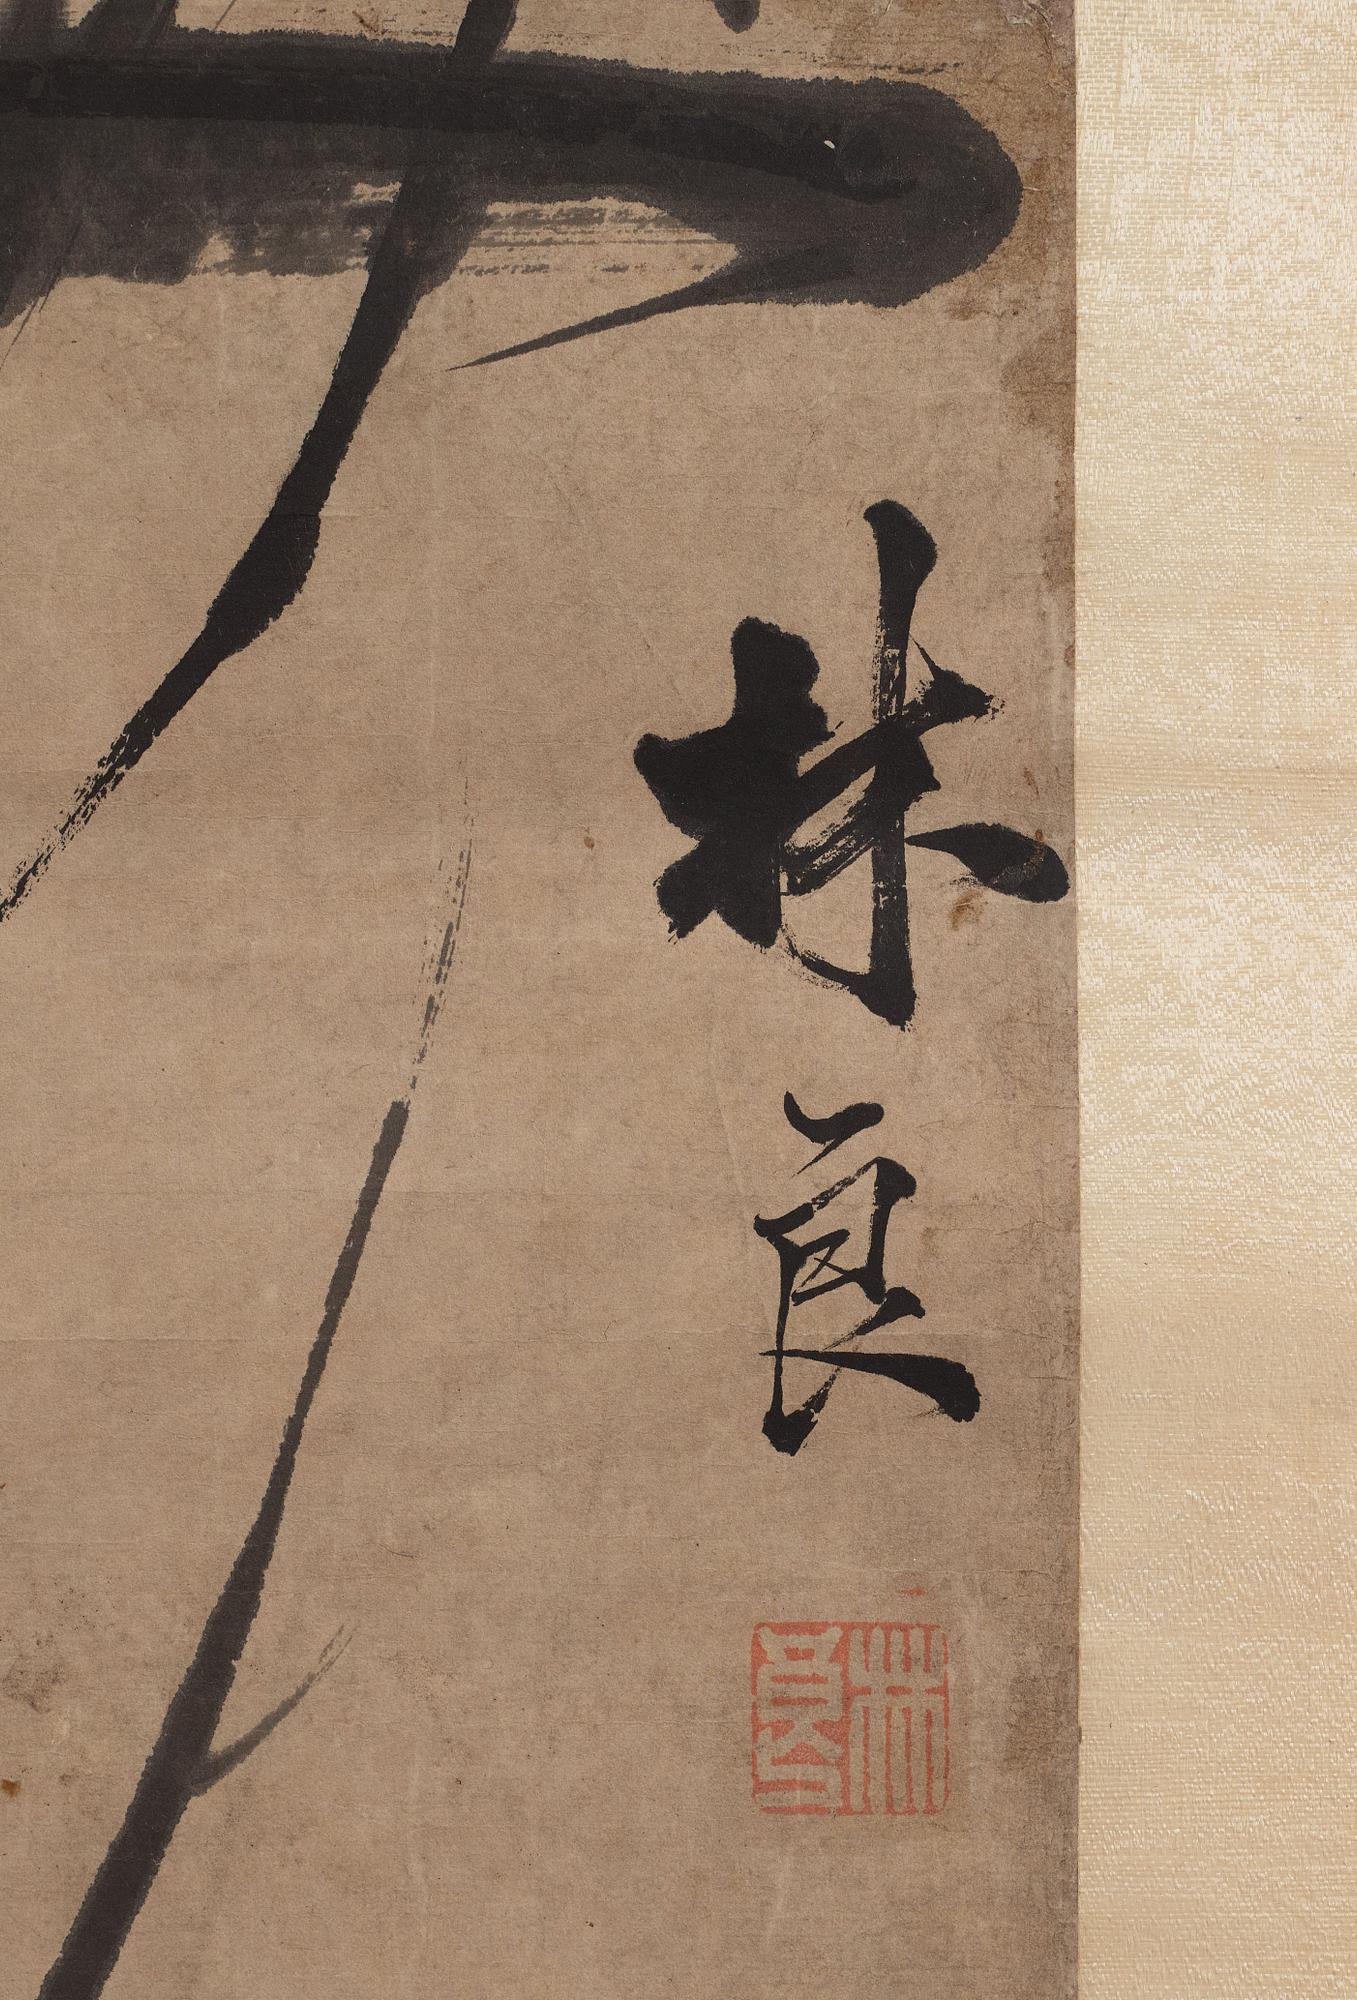 林良
林良